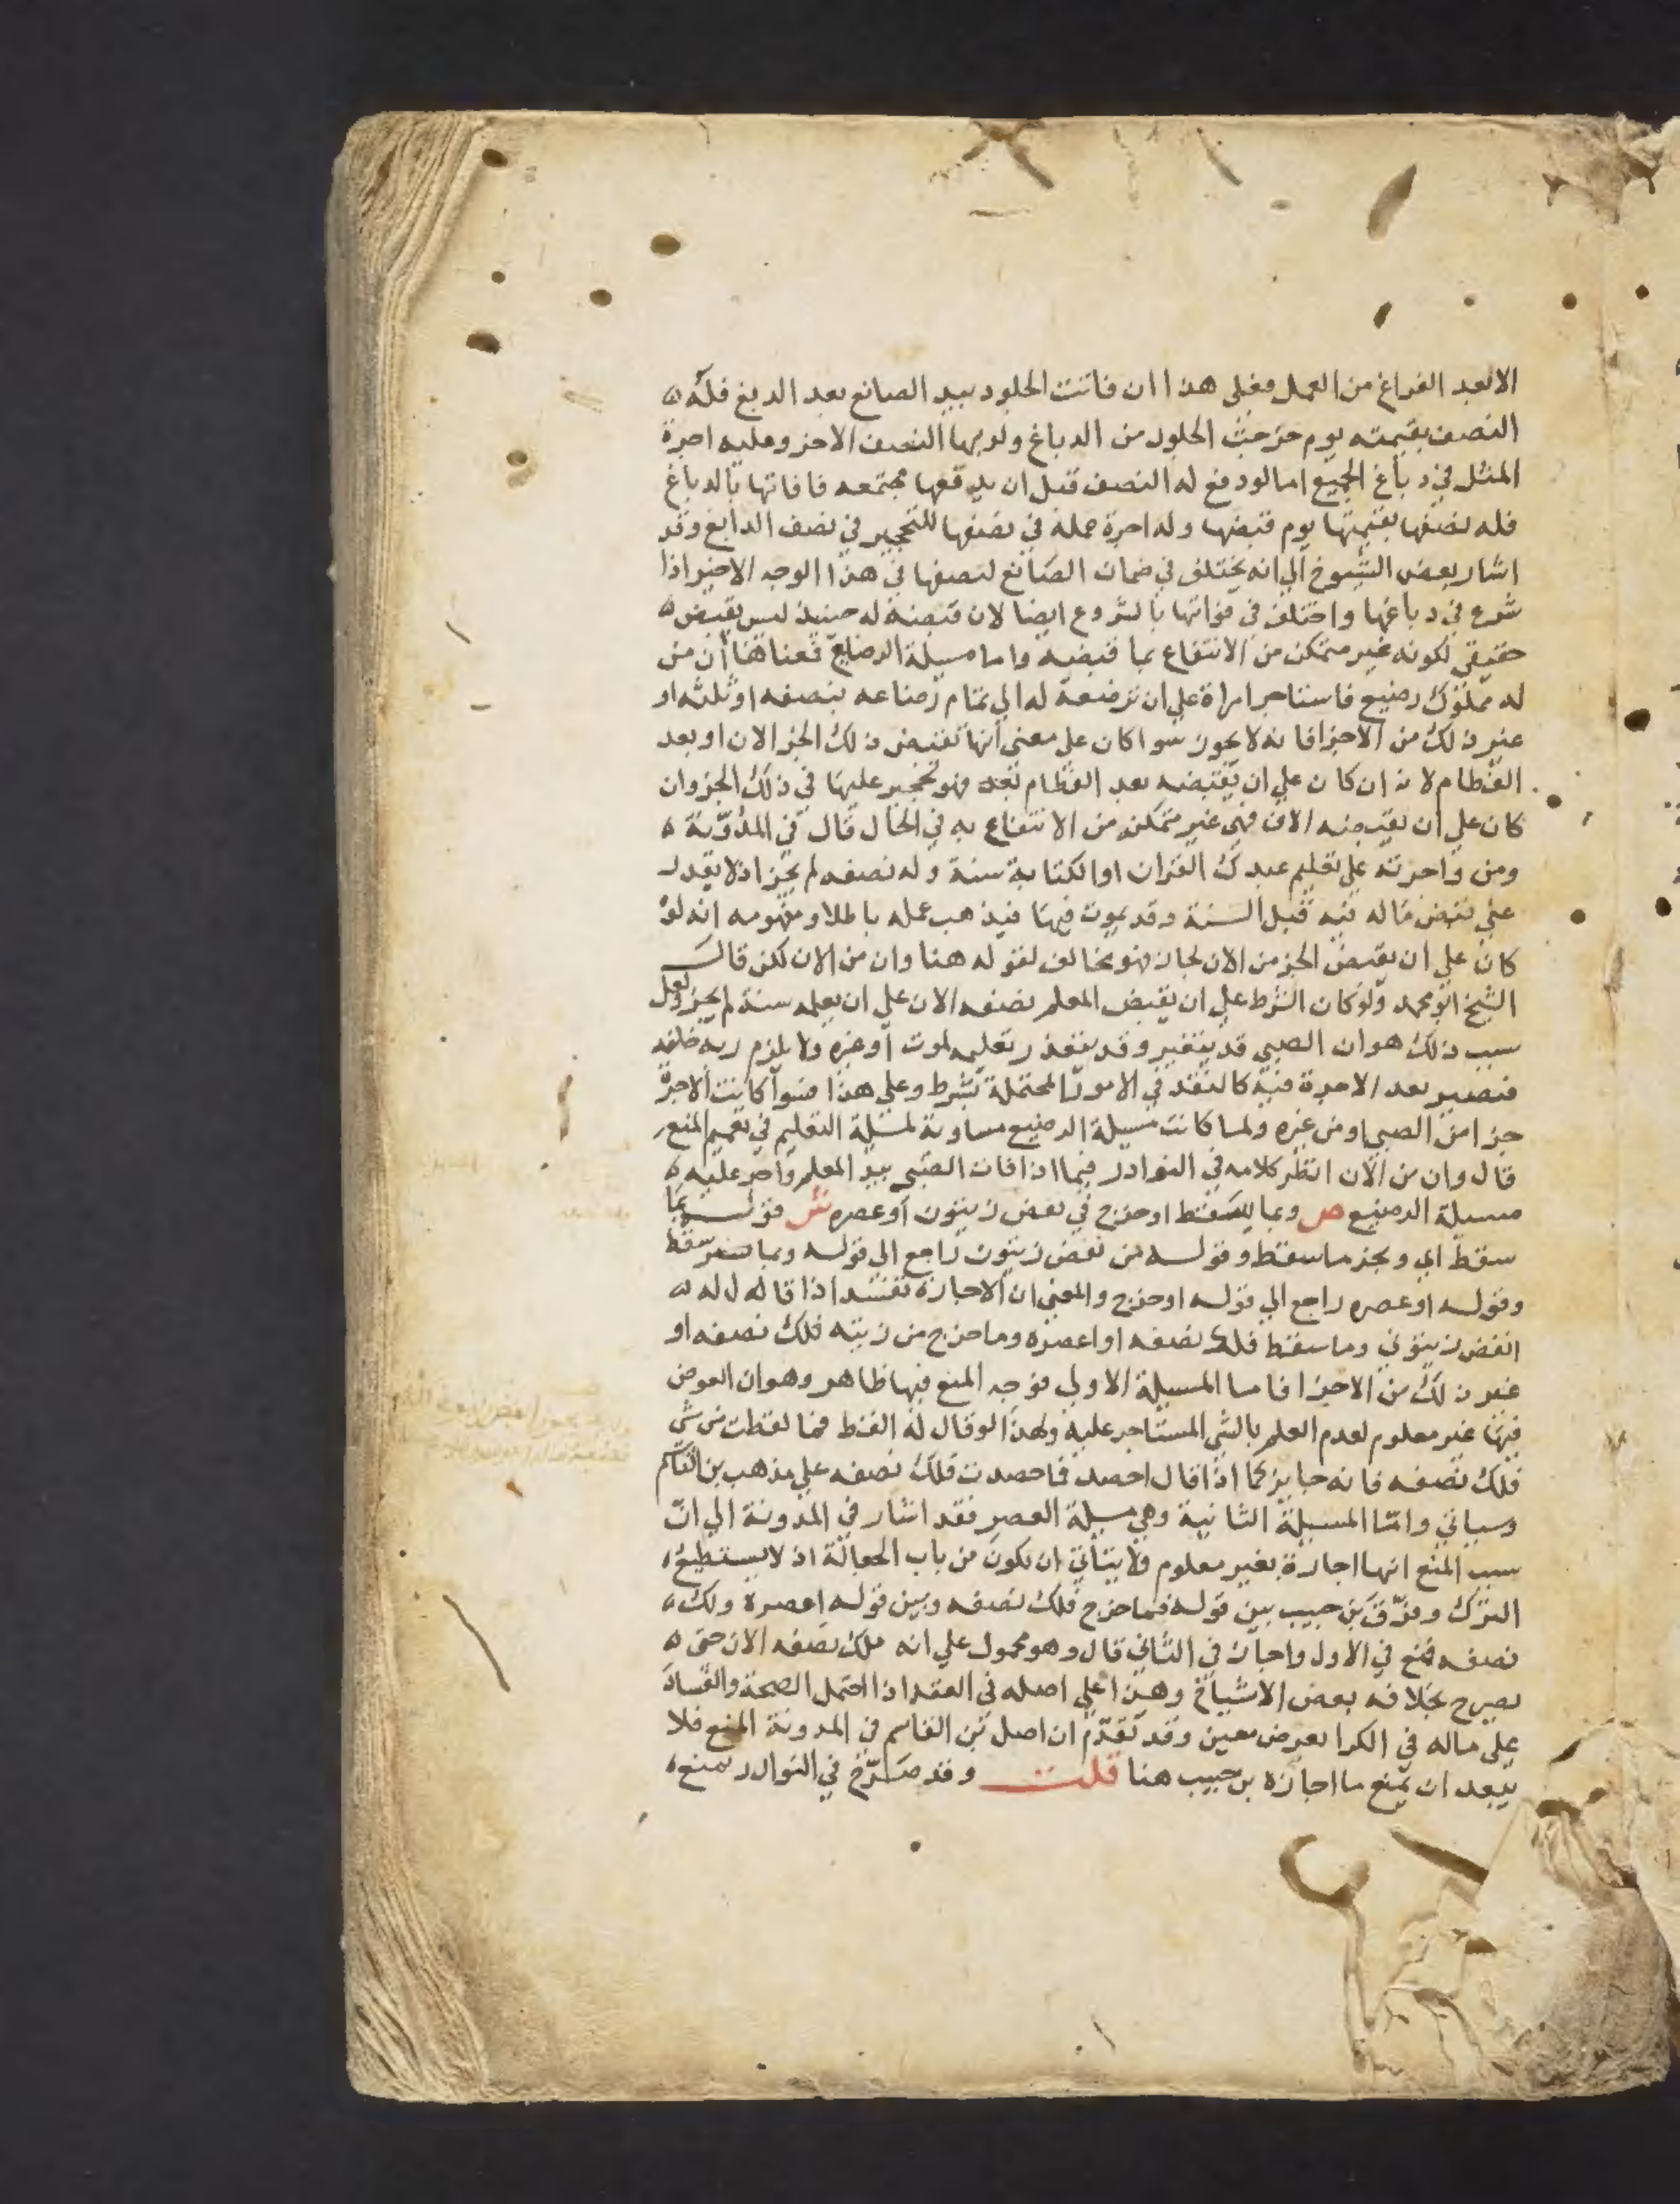 الا بعد الفراغ من العمل فعلى هذا ان فاتت الجلود بيد الصانع بعد الدبغ فله
النصف بقيمته يوم خرجت الجلود من الدباغ ولربها النصف الاخر وعليه اجرة
المثل في دباغ الجميع اما لو دفع له النصف قبل ان يدفعها مجتمعه فافاتها بالدباغ
فله نصفها بقيمتها يوم قبضها وله اجرة عمله في نصفها للتحجير في نصف الدابغ وقد
اشار بعض الشيوخ الي انه يختلف في ضمان الصانع لنصفها في هذا الوجه الاخير اذا
شرع في دباغها واختلف في فواتها بالشروع ايضا لان قبضه له حينيذ ليس بقبض
حقيقي لكونه غير متمكن من الانتفاع بما قبضه واما مسيلة الرضايع فمعناها ان من
له مملوك رضيع فاستاجر امراة علي ان ترضعه له الي تمام رضاعه بنصفه او ثلثه او
غير ذلك من الاجزا فانه لا يجوز سوا كان علي معني انها تقبض ذلك الجز الان او بعد
الفطام لانه ان كان علي ان يقبضه بعد الفطام فهو تحجير عليها في ذلك الجز وان
كان علي ان تقبضه الان فهي غير متمكنه من الانتفاع به في الحال قال في المدونة
ومن واجرته علي تعليم عبدك القران او الكتابة سنة وله نصفه لم يجز اذ لا يقدر
علي قبض ماله فيه قبل السنة وقد يموت فيها فيذهب عمله باطلا ومفهومه انه لو
كان علي ان يقبض الجز من الان لجاز فهو مخالف لقوله هنا وان من الان لكن قال
الشيخ ابو محمد ولو كان الشرط علي ان يقبض المعلم نصفه الان علي ان يعلمه سنة لم يجز ولعل
سبب ذلك هو ان الصبي قد يتغير وقد يتعذر تعليمه لموت او غيره ولا يلزم ربه خلفه
فيصير بعد الاجرة فيه كالنقد في الامور المحتملة بشرط وعلي هذا فسوا كانت الاجرة
جزا من الصبي او من غيره ولما كانت مسيلة الرضيع مساوية لمسيلة التعليم في تعميم المنع
قال وان من الان انظر كلامه في النوادر فيما اذا فات الصبي بيد المعلم واجر عليه
مسيلة الرضيع ص وبما يسقط او خرج في نفض زيتون او عصره ش قوله بما
سقط اي وبجز ما سقط وقوله من نفض زيتون راجع الي قوله وبما سقط
وقوله او عصره راجع الي قوله او خرج والمعني ان الاجارة تفسد اذا قال له
انفض زيتوني وما سقط فلك نصفه او اعصره وما خرج من زيته فلك نصفه او
غير ذلك من الاجزا فاما المسيلة الاولي فوجه المنع فيها ظاهر وهو ان العوض
فيها غير معلوم لعدم العلم بالشي المستاجر عليه ولهذا لو قال له القط فما لقطت من شي
فلك نصفه فانه جايز كما اذا قال احصد فما حصدت فلك نصفه علي مذهب بن القاسم
وسياتي واما المسيلة الثانية وهي مسيلة العصر فقد اشار في المدونة الي ان
سبب المنع انها اجارة بغير معلوم ولا يتاتي ان يكون من باب الجعالة اذ لا يستطيع
الترك وفرق بن حبيب بين قوله فما خرج فلك نصفه وبين قوله اعصره ولك
نصفه فمنع في الاول واجاز في الثاني قال وهو محمول علي انه ملك نصفه الان حتى
يصرح بخلافه بعض الاشياخ وهذا علي اصله في العقد اذا احتمل الصحة والفساد
علي ماله في الكرا بعرض معين وقد تقدم ان اصل بن القاسم في المدونة المنع فلا
يبعد ان يمنع ما اجازه بن حبيب هنا قلت وقد صرح في النوادر بمنع